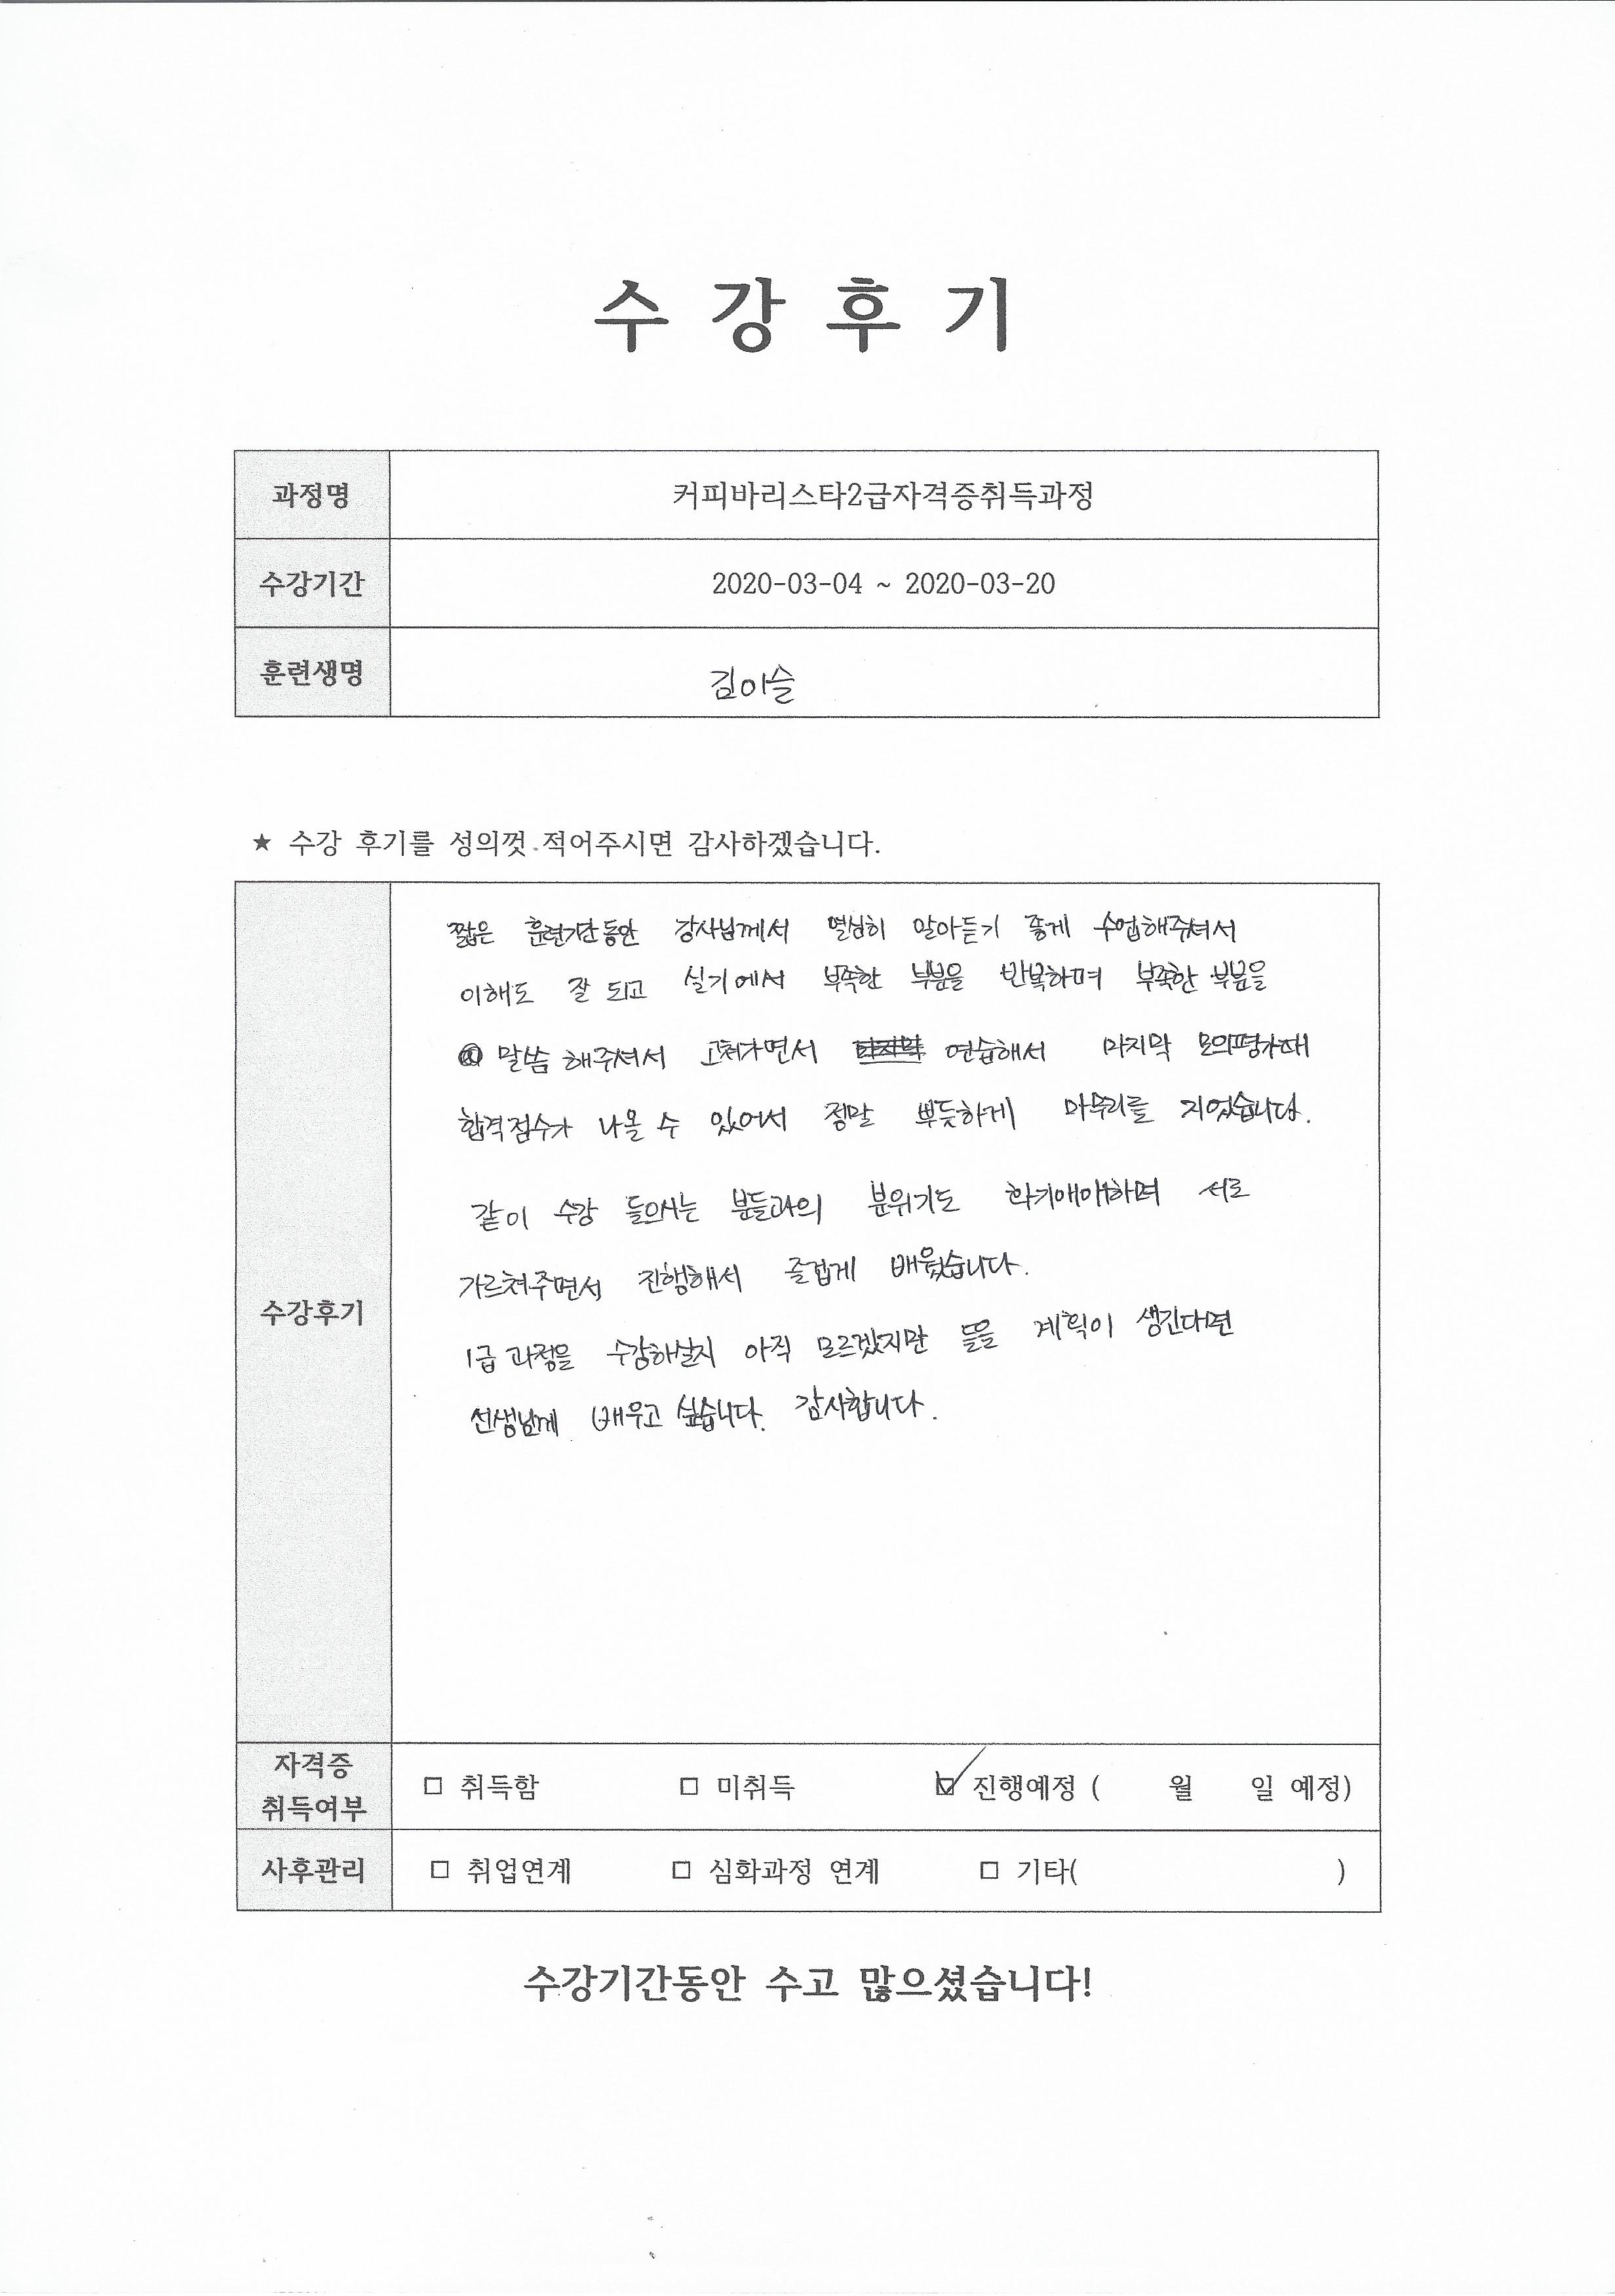 수 강 후 기
과정명 커피바리스타2급자격증취득과정
수강기간 2020-03-04 ~ 2020-03-20
훈련생명 김이슬
★ 수강 후기를 성의껏 적어주시면 감사하겠습니다.
짧은 훈련기간동안 강사님께서 열심히 알아듣기 좋게 수업해주셔서
이해도 잘 되고 실기에서 부족한 부분을 반복하며 부족한 부분을
말씀 해주셔서 고쳐가면서 연습해서 마지막 모의평가때
합격점수가 나올 수 있어서 정말 뿌듯하게 마무리를 지었습니다.
같이 수강 들으시는 분들과의 분위기도 화기애애하며 서로
가르쳐주면서 진행해서 즐겁게 배웠습니다.
수강후기
1급 과정을 수강해설지 아직 모르겠지만 들을 계획이 생긴다면
선생님께 배우고 싶습니다. 감사합니다.
자격증
취득여부
□ 취득함 □ 미취득 ☑ 진행예정 ( 월 일 예정)
사후관리 □ 취업연계 □ 심화과정 연계 □ 기타( )
수강기간동안 수고 많으셨습니다!